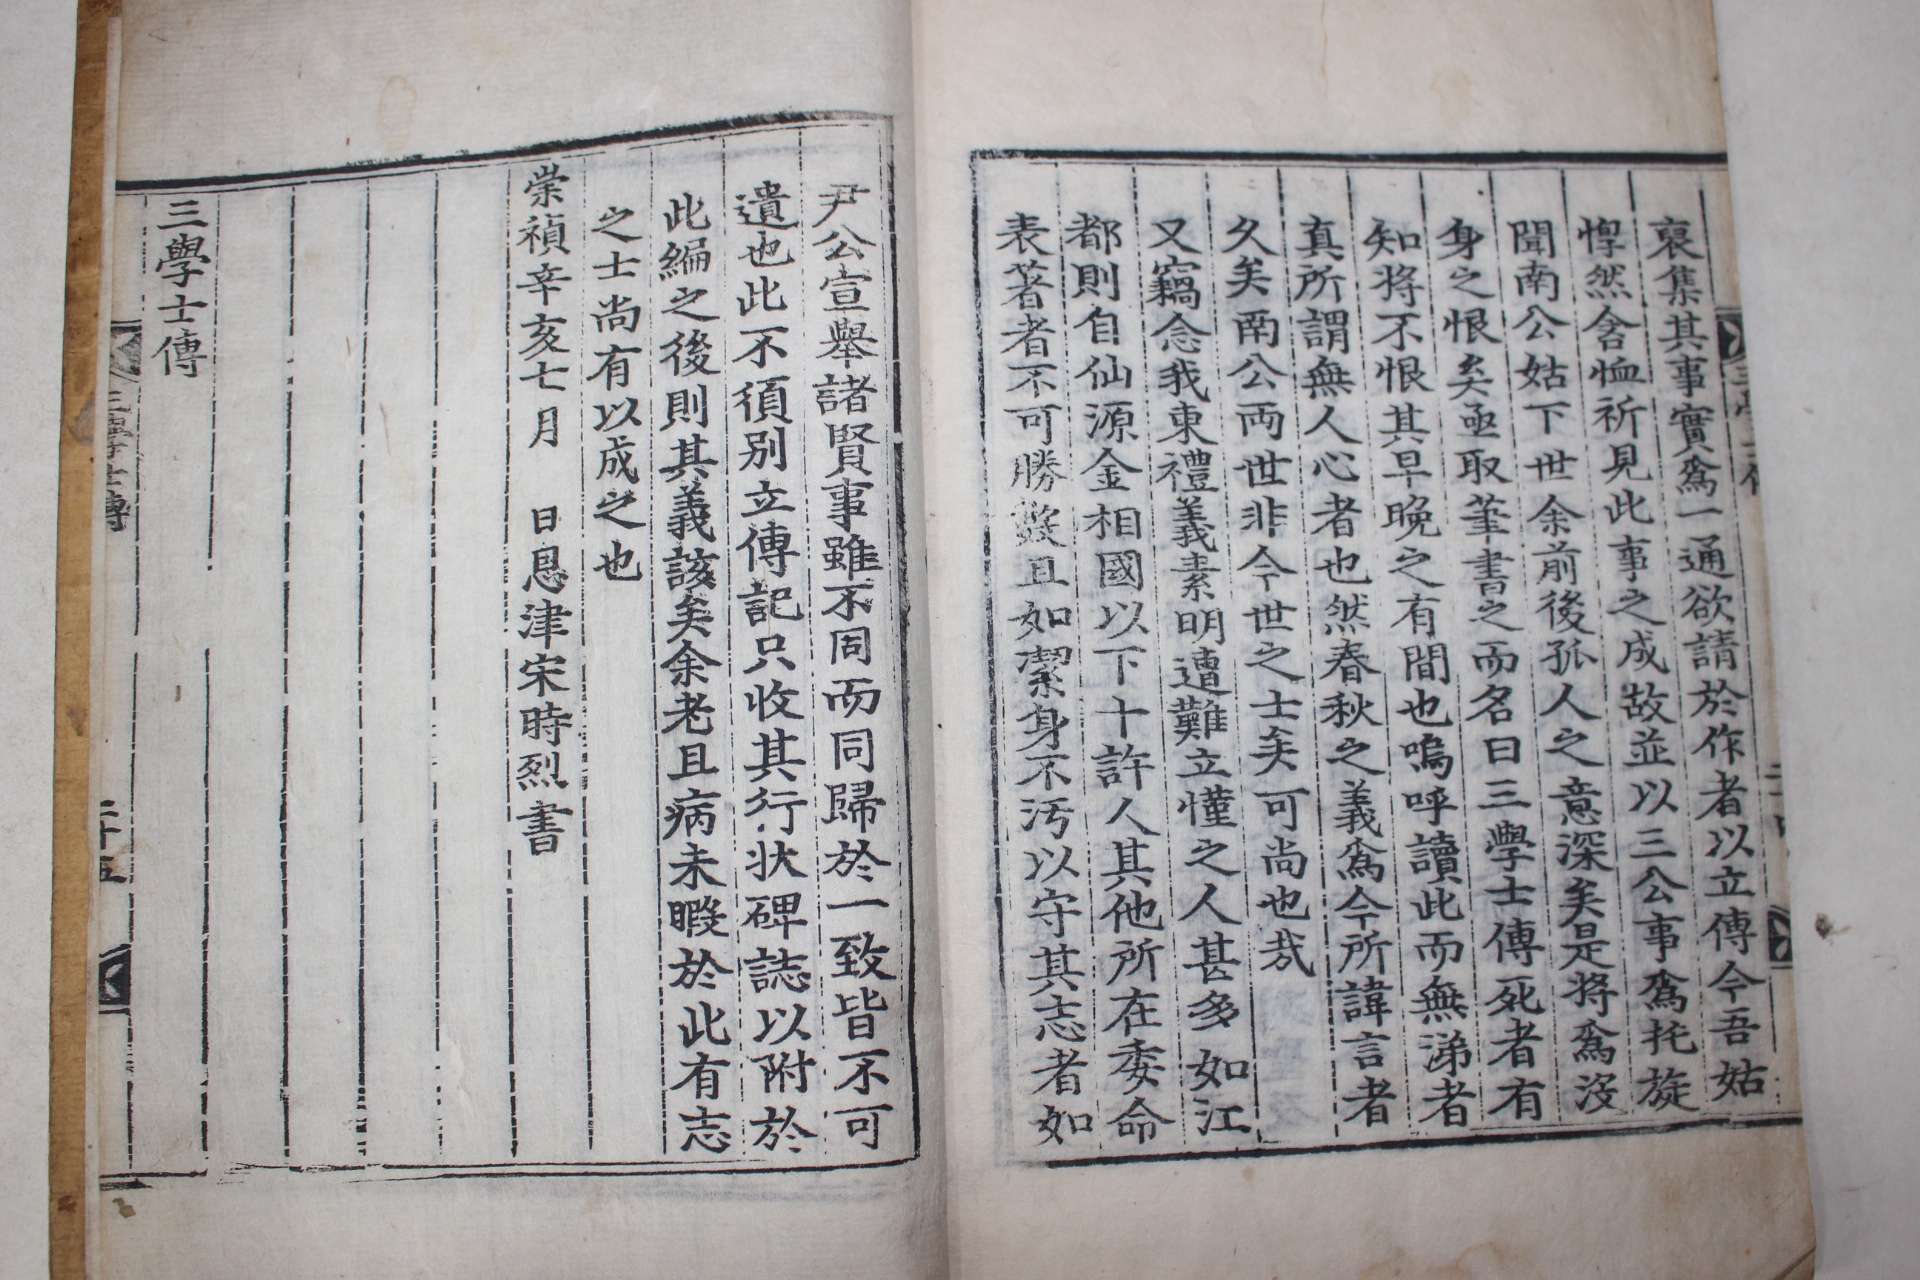 裒集其事實爲一通欲請於作者以立傳今吾姑
惸然含恤祈見此事之成故並以三公事爲托旋
聞南公姑下世余前後孤人之意深矣是將爲沒
身之恨矣亟取筆書之而名曰三學士傳死者有
知將不恨其早晚之有間也嗚呼讀此而無涕者
眞所謂無人心者也然春秋之義爲今所諱言者
久矣南公兩世非今世之士矣可尚也哉
又竊念我東禮義素明遭難立慬之人甚多如江
都則自仙源金相國以下十許人其他所在委命
表著者不可勝數且如潔身不汚以守其志者如
尹公宣擧諸賢事雖不同而同歸於一致皆不可
遺也此不須別立傳記只收其行狀碑誌以附於
此編之後則其義該矣余老且病未暇於此有志
之士尚有以成之也
崇禎辛亥七月 日恩津宋時烈書
三學士傳
三學士傳
二十五